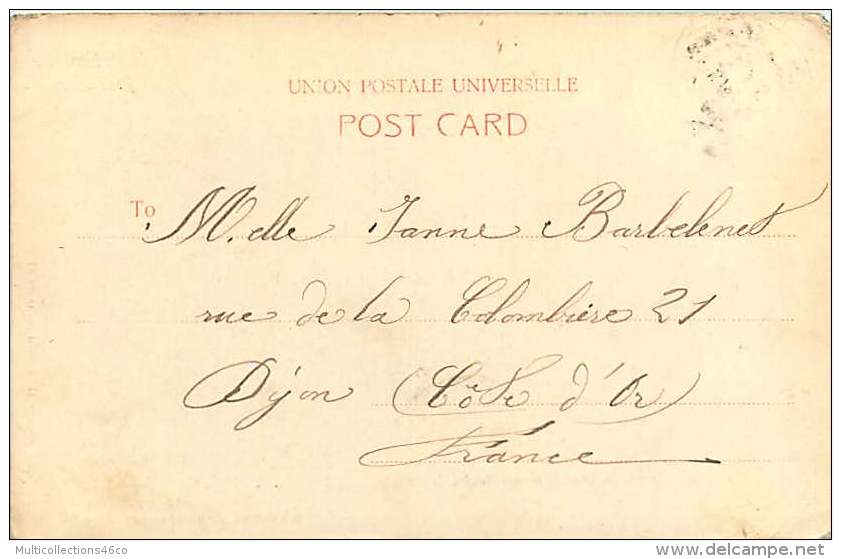 UNION POSTALE UNIVERSELLE
POST CARD
To M.elle Janne Barbelenet
rue de la Colombière 21
Dijon (Côte d'Or)
France
Multicollections46co
delcampe.net